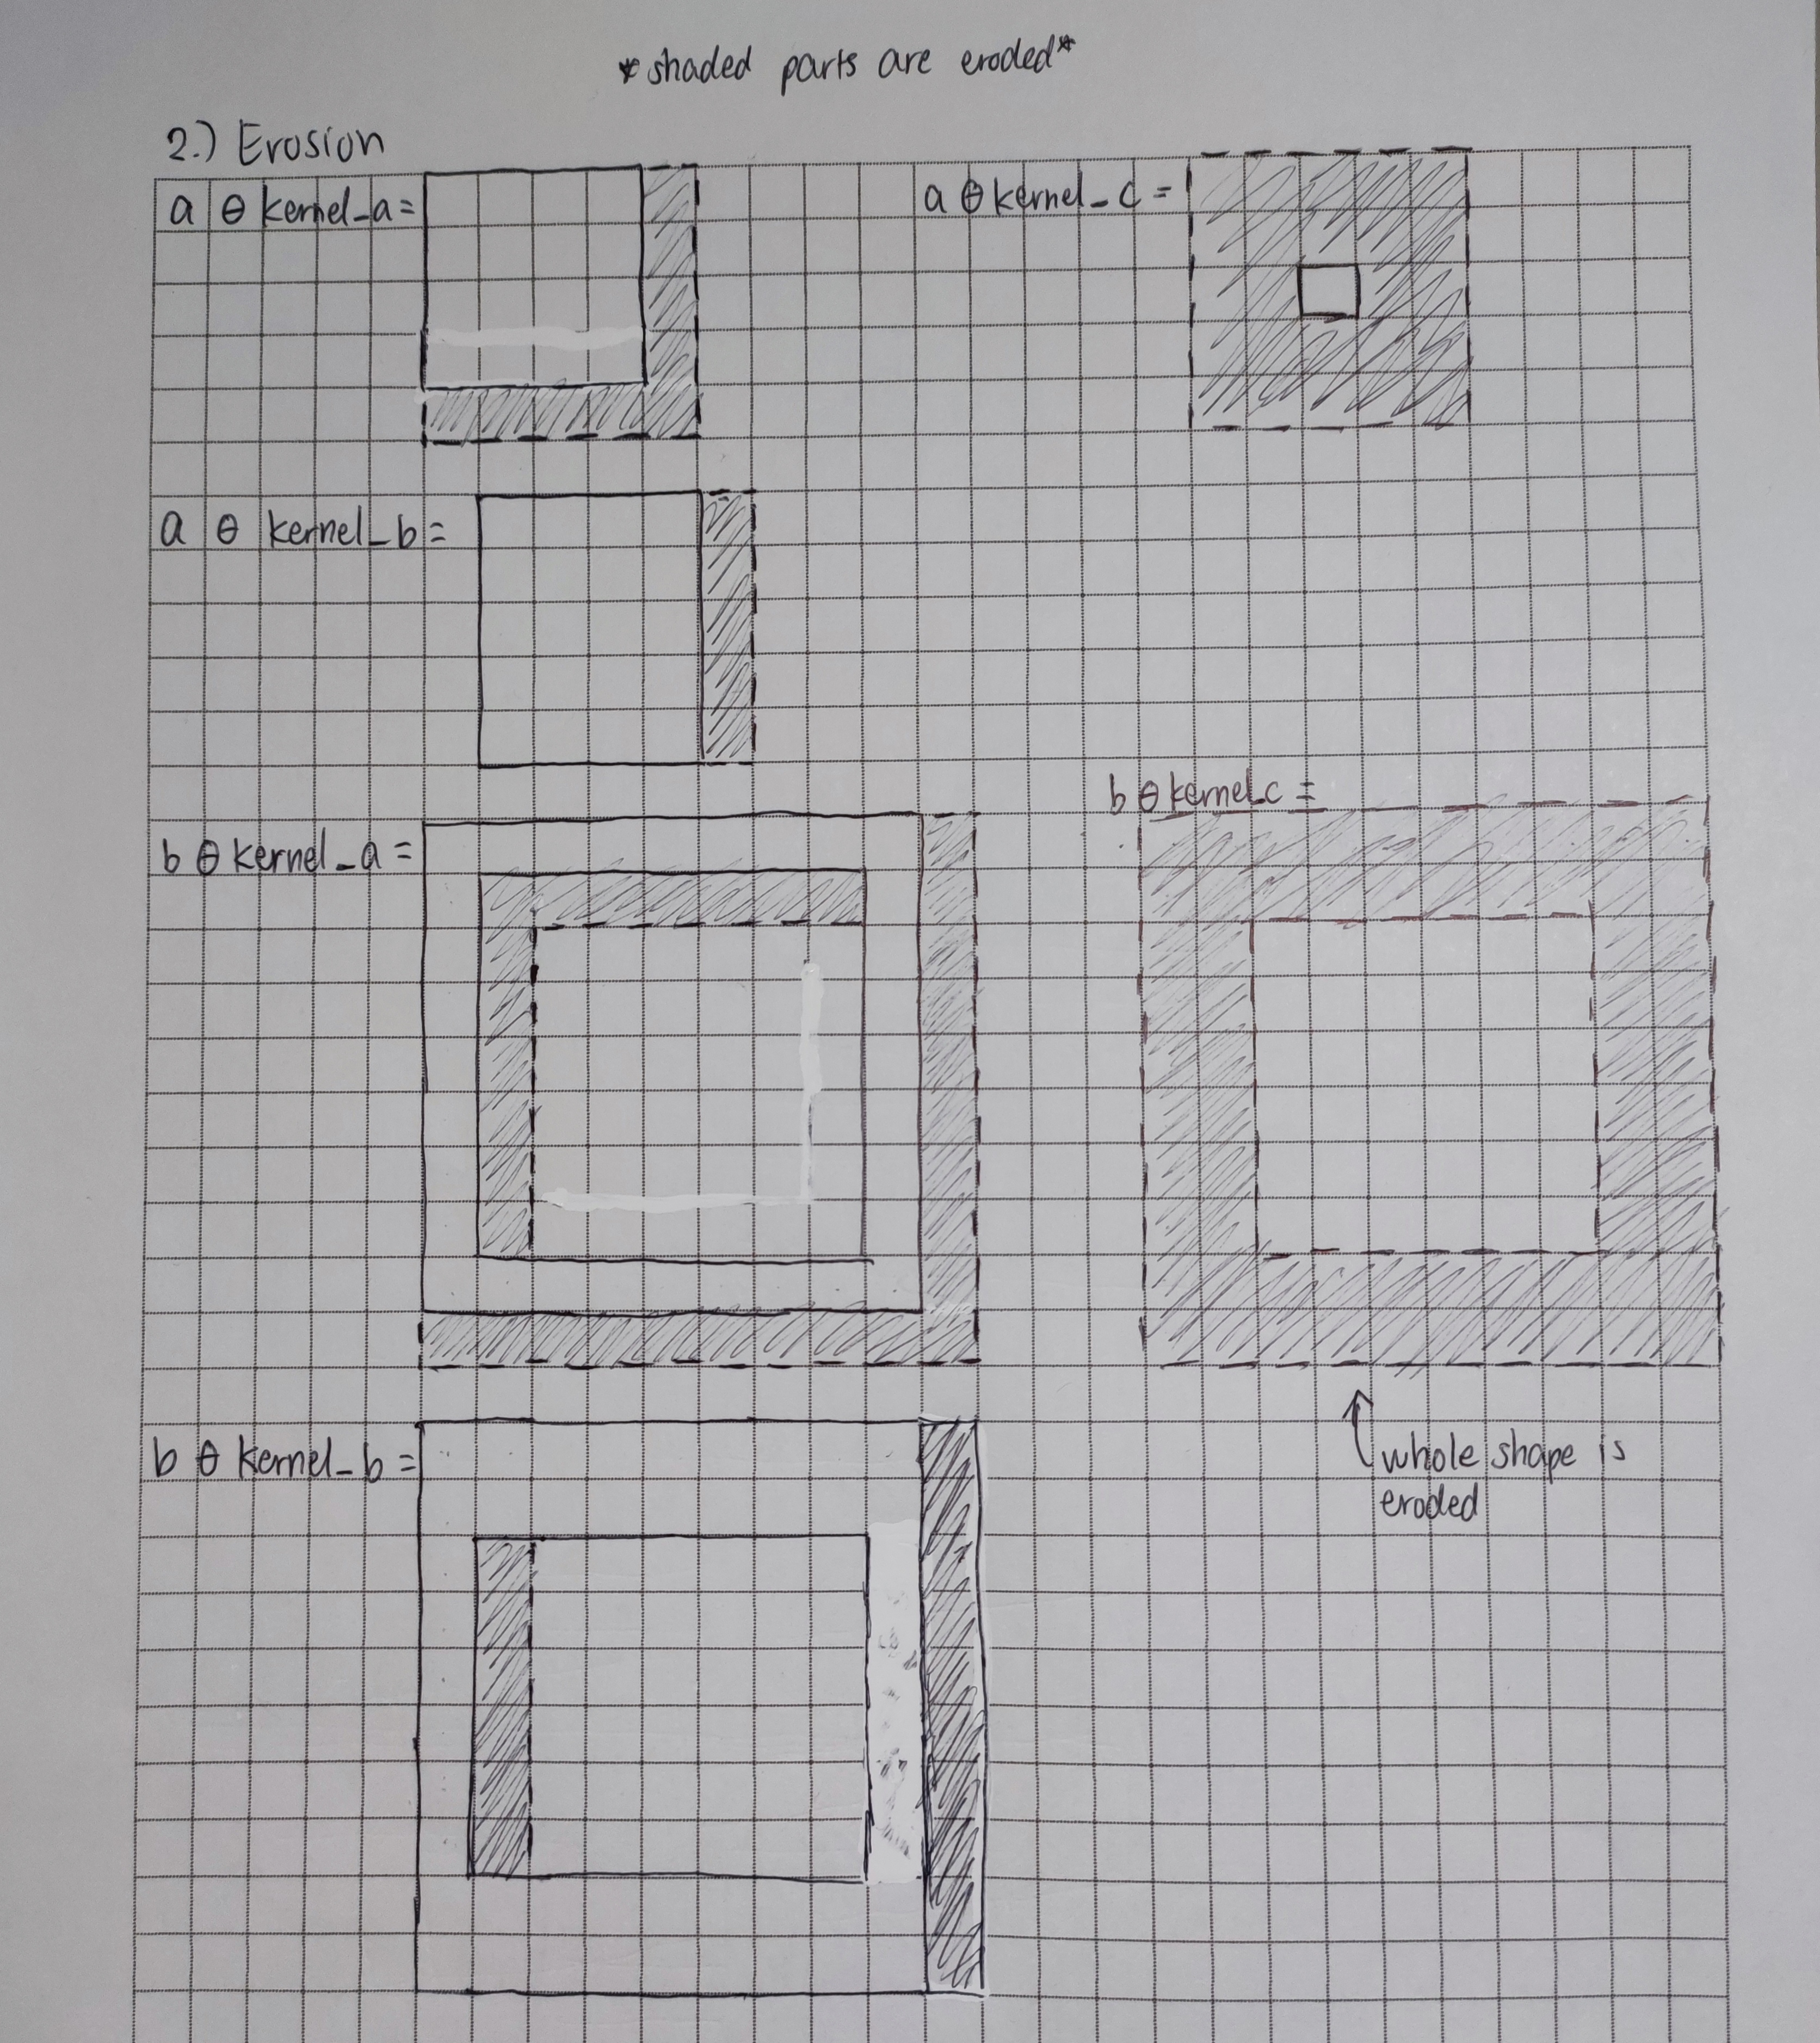 *shaded parts are eroded*
2.) Erosion
a ⊖ kernel_a =
a ⊖ kernel_c =
a ⊖ kernel_b =
b ⊖ kernel_c =
b ⊖ kernel_a =
b ⊖ kernel_b =
whole shape is
eroded